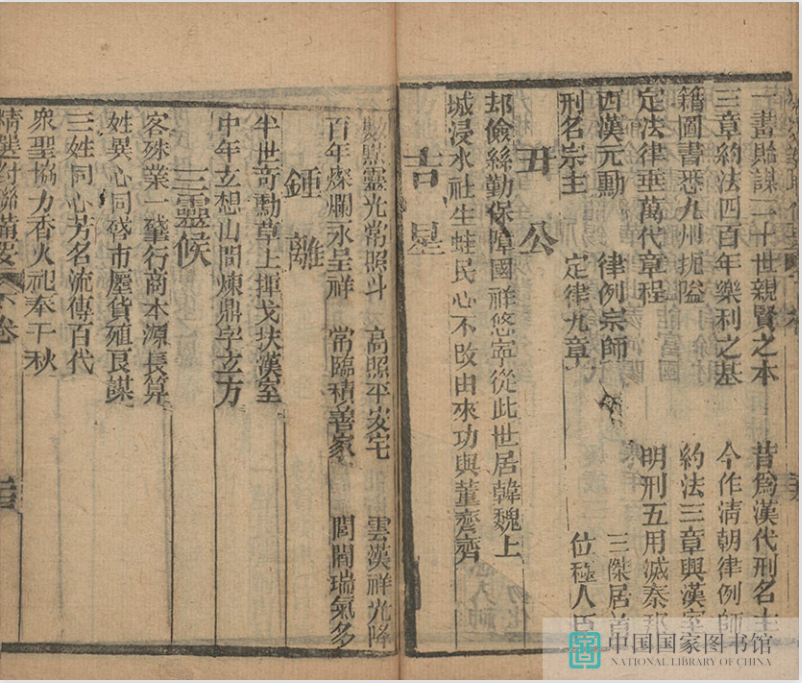 一畫貽謀二十世親賢之本 昔爲漢代刑名主
三章約法四百年樂利之基 今作清朝律例師
籍圖書悉九州扼隘 約法三章與漢室
定法律垂萬代章程 明刑五用滅秦邦
西漢元勳 律例宗師 三傑居首
刑名宗主 定律九章 位極人臣
丑公
却儉絲勤保障國祥悠寧從此世居韓魏上
城浸水社生蛙民心不改由來功與董齊齊
吉星
點靈光常照斗 高照平安宅 雲漢祥光降
百年燦爛永呈祥 常臨積善家 閭閻瑞氣多
鍾離
半世奇勳草上揮戈扶漢室
中年玄想山間煉鼎學玄方
三靈候
客殊業一肇行商本源長算
姓異心同發市廛貨殖良謀
三姓同心芳名流傳百代
衆聖協力香火祀奉千秋
精選對聯備要 下卷
中国国家图书馆
NATIONAL LIBRARY OF CHINA